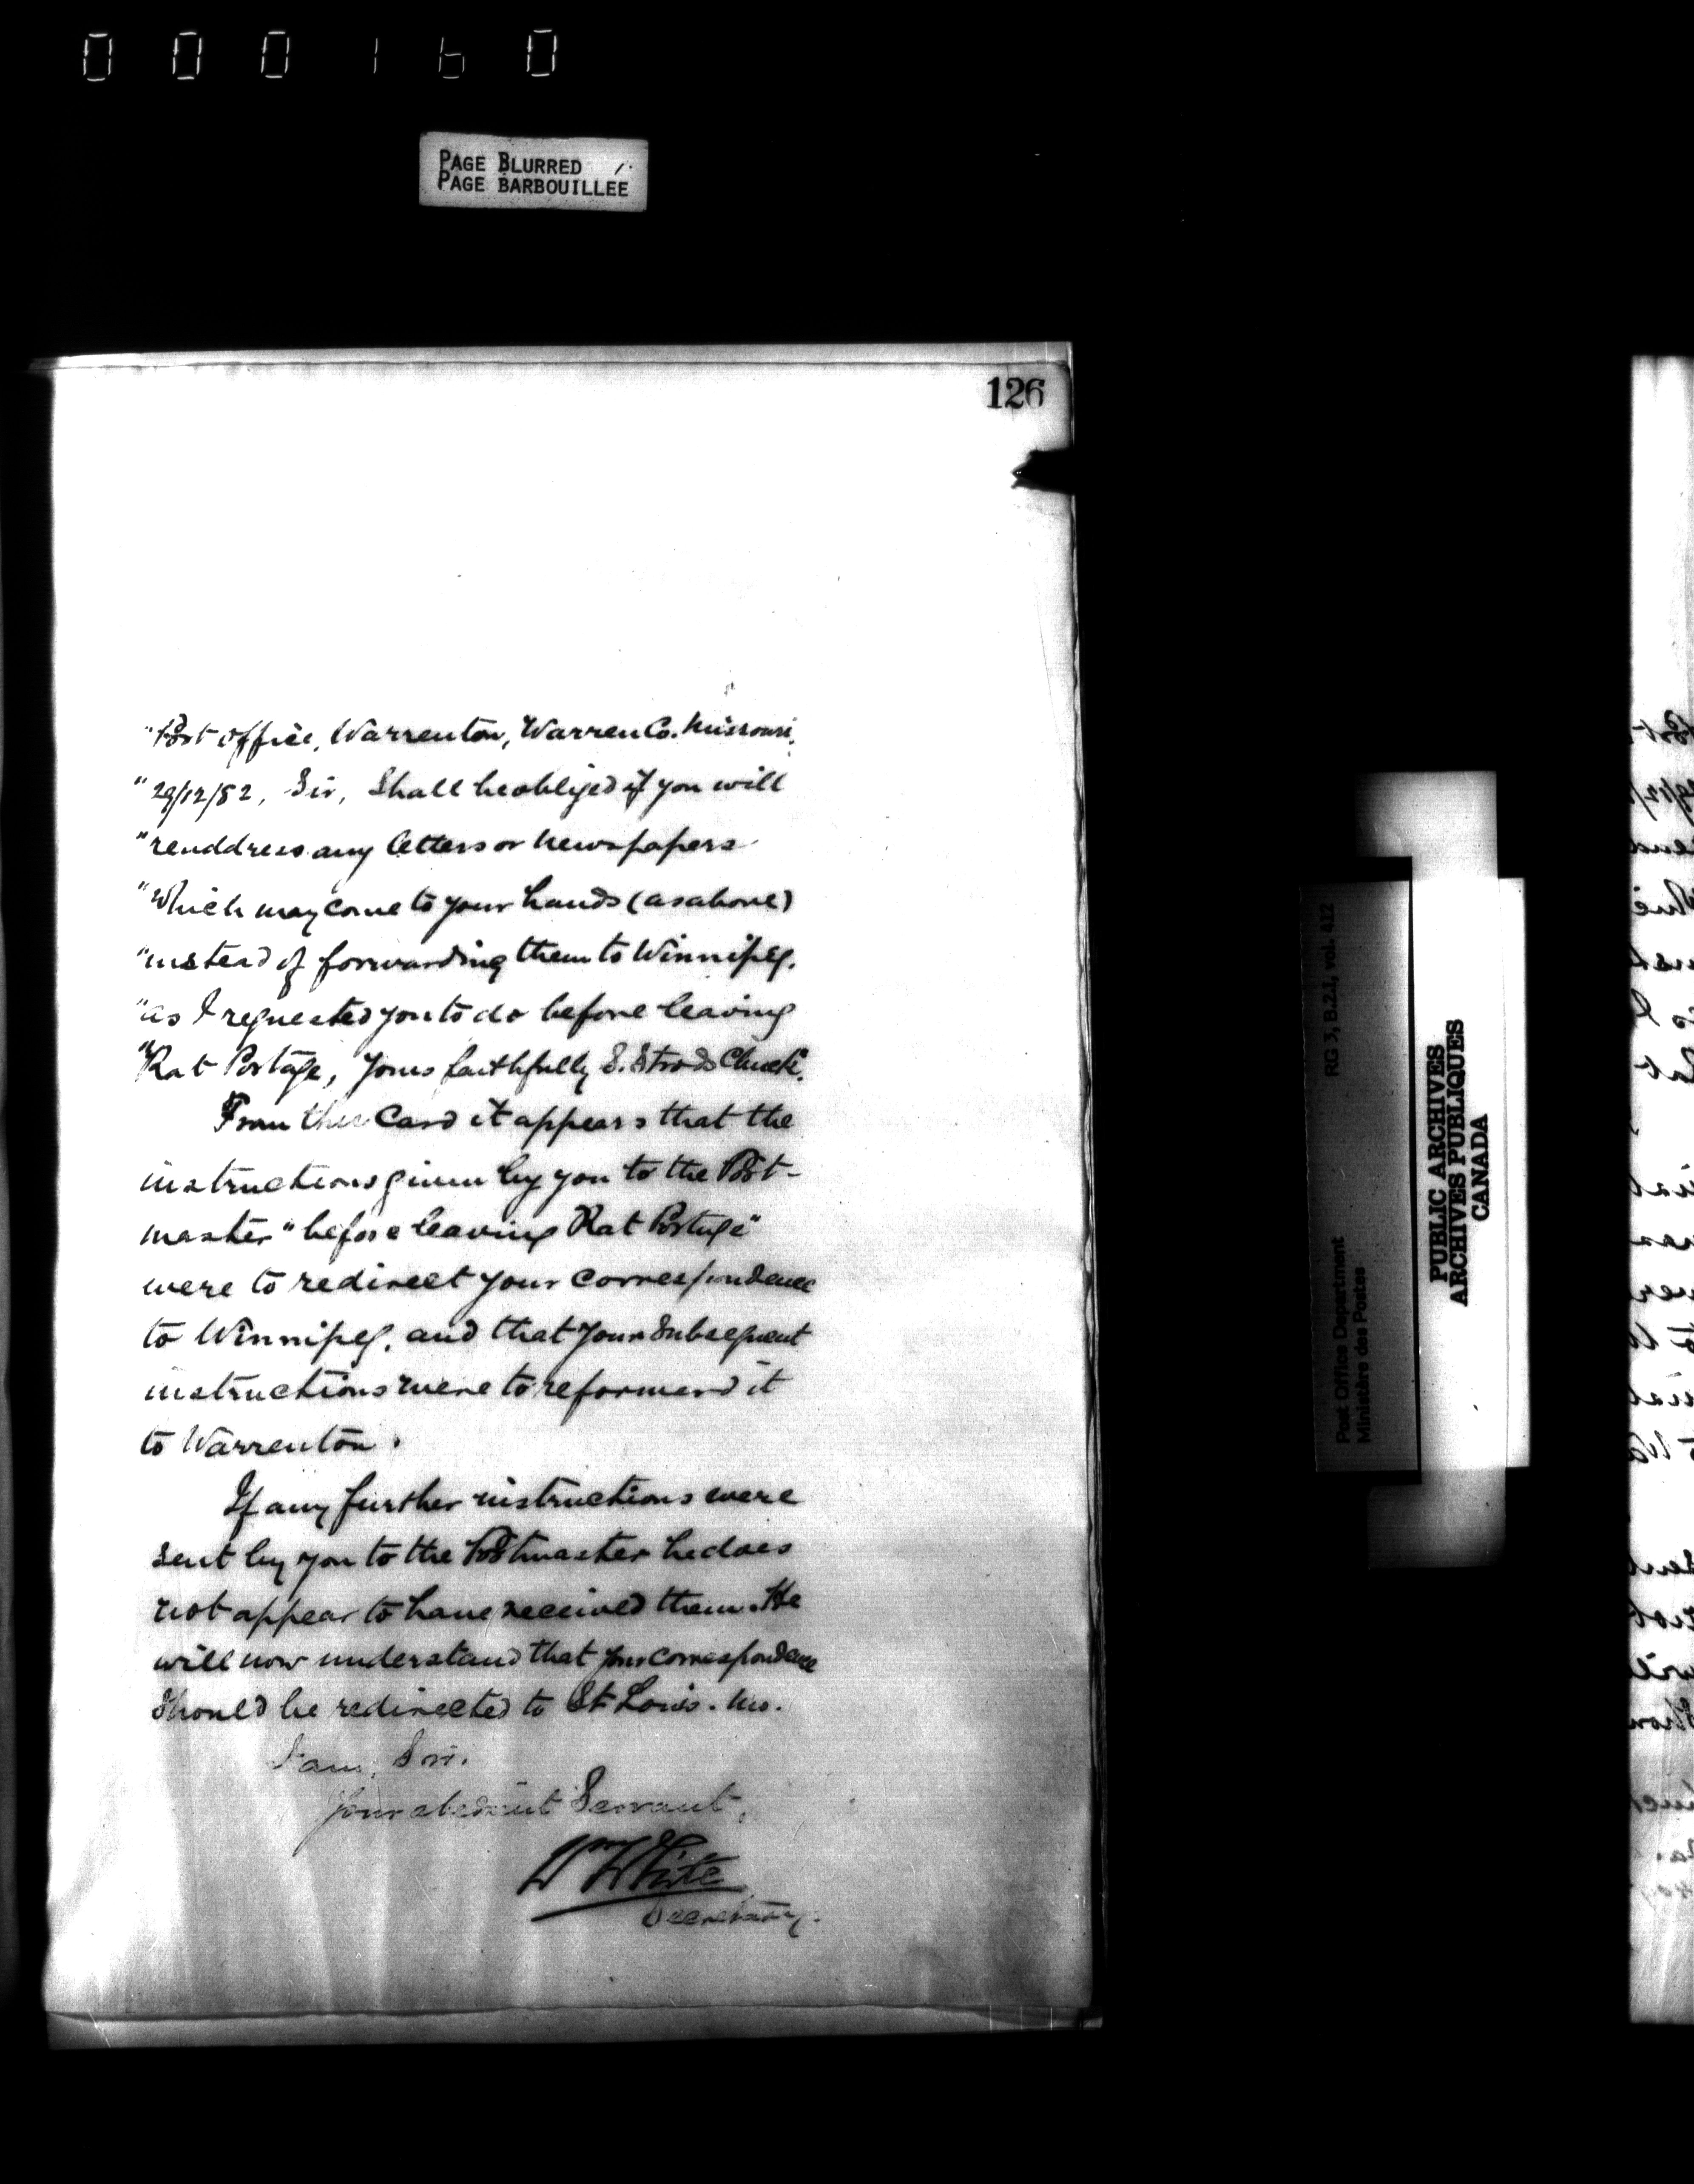 000160
PAGE BLURRED
PAGE BARBOUILLÉE
126
"Post Office, Warrenton, Warren Co. Missouri,
"29/12/82, Sir, Shall be obliged if you will
"readdress any letters or newspapers
"which may come to your hands (as above)
"instead of forwarding them to Winnipeg,
"as I requested you to do before leaving
"Rat Portage, Yours faithfully S.
From this Card it appears that the
instructions given by you to the Post-
master "before leaving Rat Portage"
were to redirect your correspondence
to Winnipeg, and that your subsequent
instructions were to reforward it
to Warrenton.
If any further instructions were
sent by you to the Postmaster he does
not appear to have received them. He
will now understand that your correspondence
should be redirected to St Louis. Mo.
I am, Sir.
Your obedient Servant,
Wm White
Secretary.
RG 3, B.2.1, vol. 412
Post Office Department
Ministère des Postes
PUBLIC ARCHIVES
ARCHIVES PUBLIQUES
CANADA